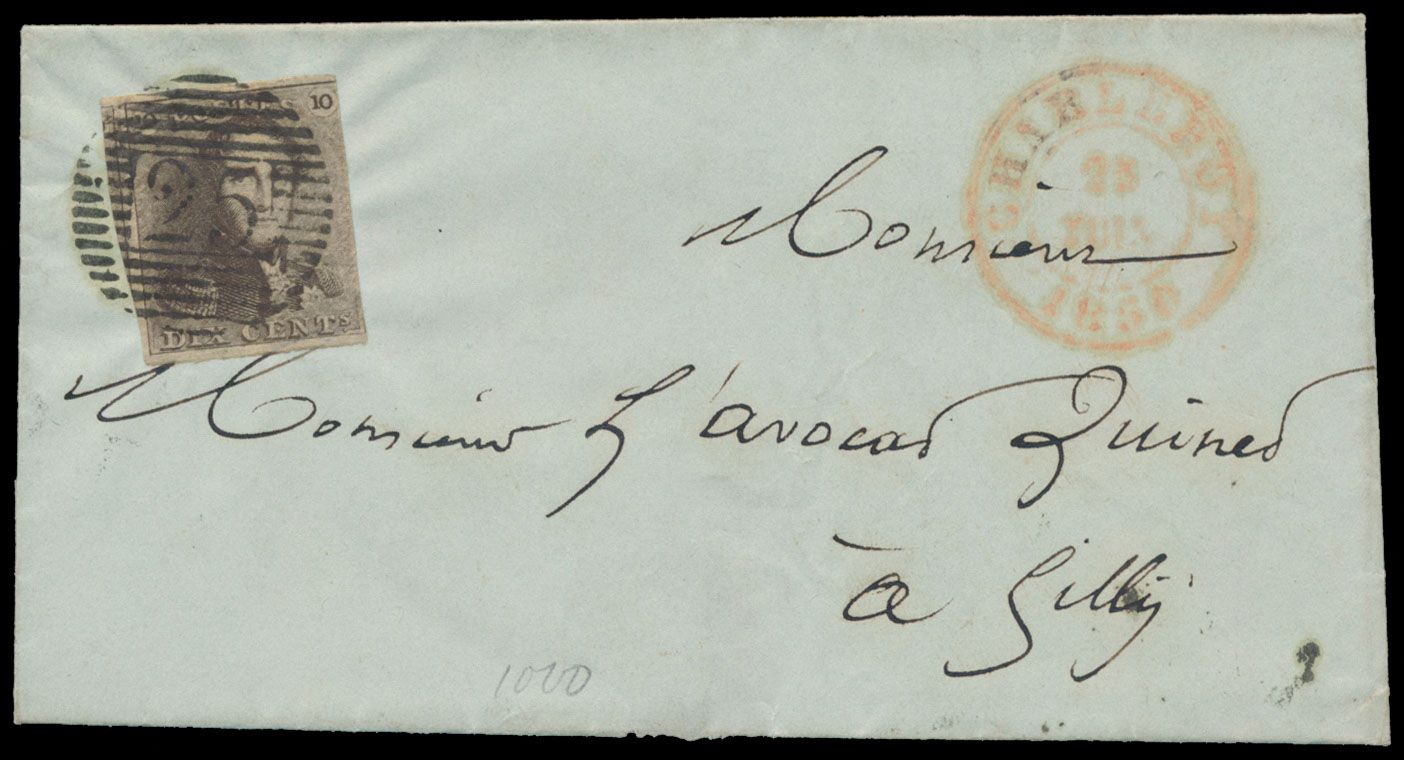 POSTES 10
25
DIX CENTS
CHARLEROY
25
JUIN
1850
Monsieur
Monsieur L'avocat Quinet
à Gilly
1000